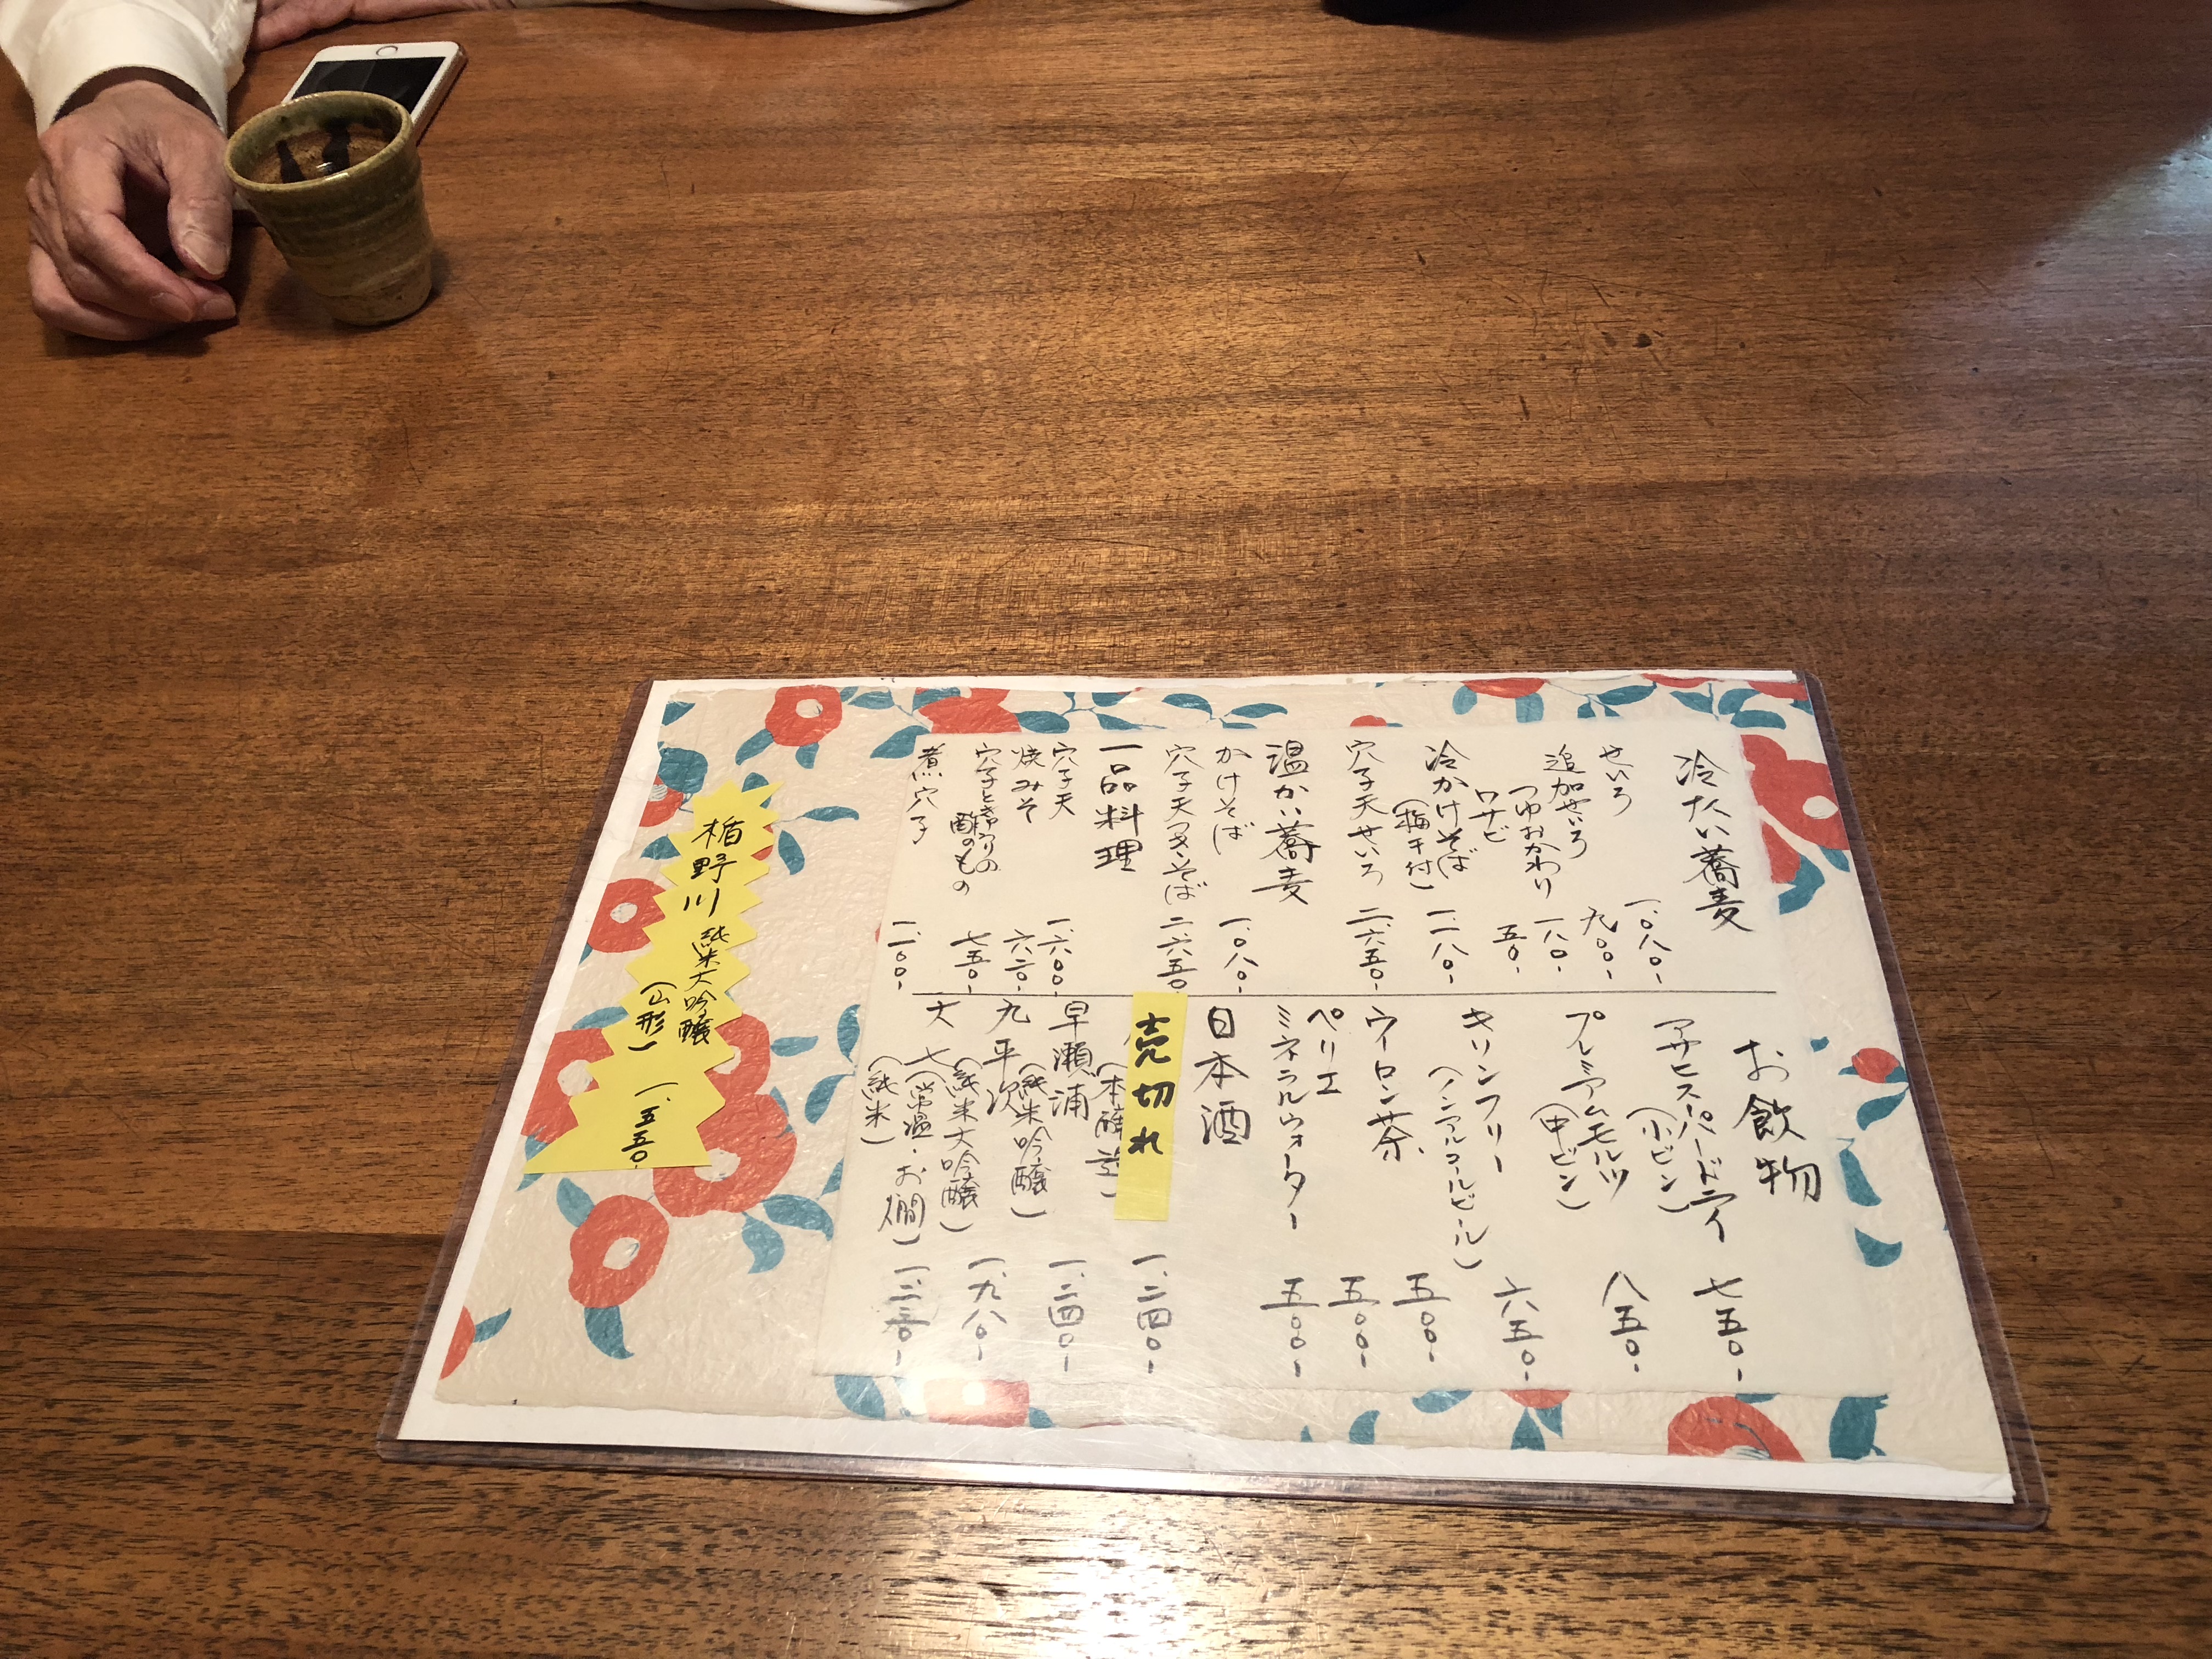 冷たい蕎麦
せいろ 一、〇八〇-
追加せいろ 九〇〇-
つゆおかわり 一八〇-
ワサビ 五〇-
冷かけそば
(梅干付) 一、一八〇-
穴子天せいろ 二、六五〇-
温かい蕎麦
かけそば 一、〇八〇-
穴子天ヌキそば 二、六五〇-
一品料理
穴子天 一、六〇〇-
焼みそ 六三〇-
穴子ときゅうりの
酢のもの 七五〇-
煮穴子 一、一〇〇-
お飲物
アサヒスーパードライ
(小ビン) 七五〇-
プレミアムモルツ
(中ビン) 八五〇-
キリンフリー
(ノンアルコールビール) 六五〇-
ウーロン茶 五〇〇-
ペリエ 五〇〇-
ミネラルウォーター 五〇〇-
日本酒
売切れ
(本醸造) 一、二四〇-
早瀬浦
(純米吟醸) 一、二四〇-
九平次
(純米大吟醸) 一、九八〇-
大七(常温・お燗)
(純米) 一、二三〇-
楯野川 純米大吟醸
(山形) 一、五五〇-